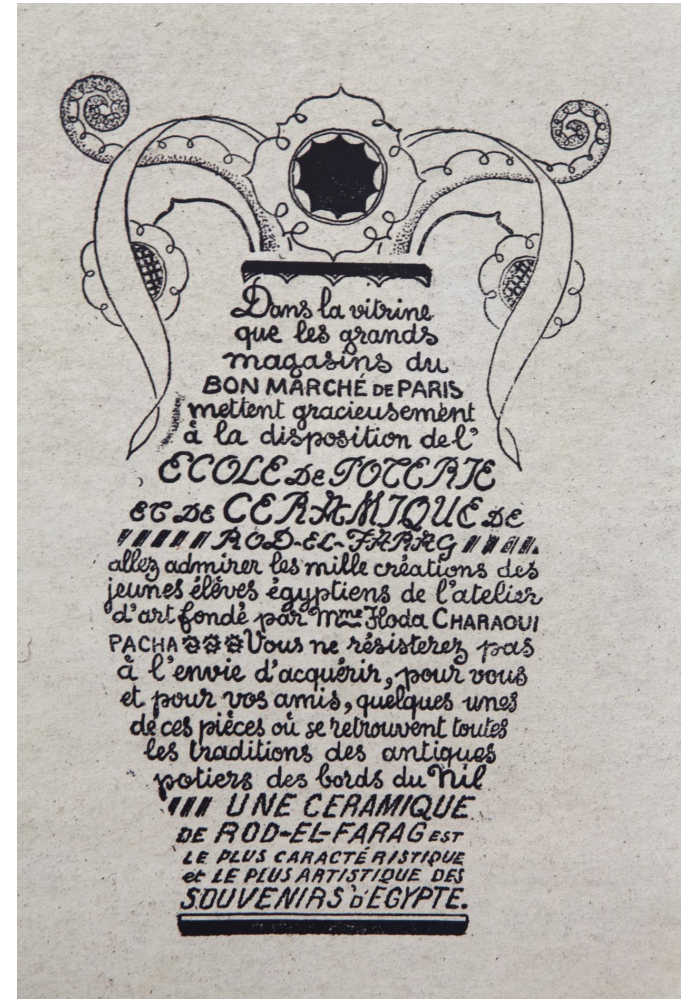 Dans la vitrine
que les grands
magasins du
BON MARCHÉ DE PARIS
mettent gracieusement
à la disposition de l'
ECOLE DE POTERIE
ET DE CERAMIQUE DE
ROD-EL-FARAG
allez admirer les mille créations des
jeunes élèves égyptiens de l'atelier
d'art fondé par Mme Hoda CHARAOUI
PACHA Vous ne résisterez pas
à l'envie d'acquérir, pour vous
et pour vos amis, quelques unes
de ces pièces où se retrouvent toutes
les traditions des antiques
potiers des bords du Nil
UNE CERAMIQUE
DE ROD-EL-FARAG EST
LE PLUS CARACTÉRISTIQUE
et LE PLUS ARTISTIQUE DES
SOUVENIRS D'EGYPTE.